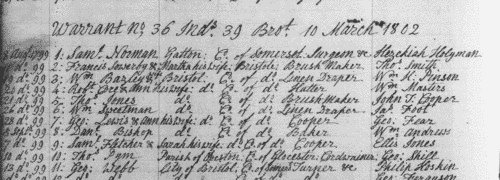 Warrant no. 36 Indrs. 39 Brot. 10 March 1802
1: Saml. Norman Yatton Co. of Somerset Surgeon & Hezekiah Holyman
2: Francis & Martha his wife Bristol Brush Maker Thos. Smith
do. 99 3: Wm. Bazley & Bristol Co. of do. Linen Draper Wm. K. Pinson
do. 99 4: Robt. & Ann his wife do. Co. of do. Hatter Wm. Masters
do. 99 5: Thos. Jones do. Co. of do. Brush Maker John T. Cooper
do. 99 6: Wm. do. Co. of do. Linen Draper Jas. Foot
do. 99 7: Geo: Lewis & Ann his wife do. Co. of do. Cooper Geo: Fear
Sept. 99 8: Danl. Bishop do. Co. of do. Baker Wm. Andrews
do. 99 9: Saml. Fletcher & Sarah his wife do. Co. of do. Cooper Ellis Jones
do. 99 10: Thos. Pym Parish of Co. of Glocester Cordwainer Geo: Skilt
do. 99 11: Geo: Webb City of Bristol Co. of Turner &c Philip Hoskin
Geo: Ferguson